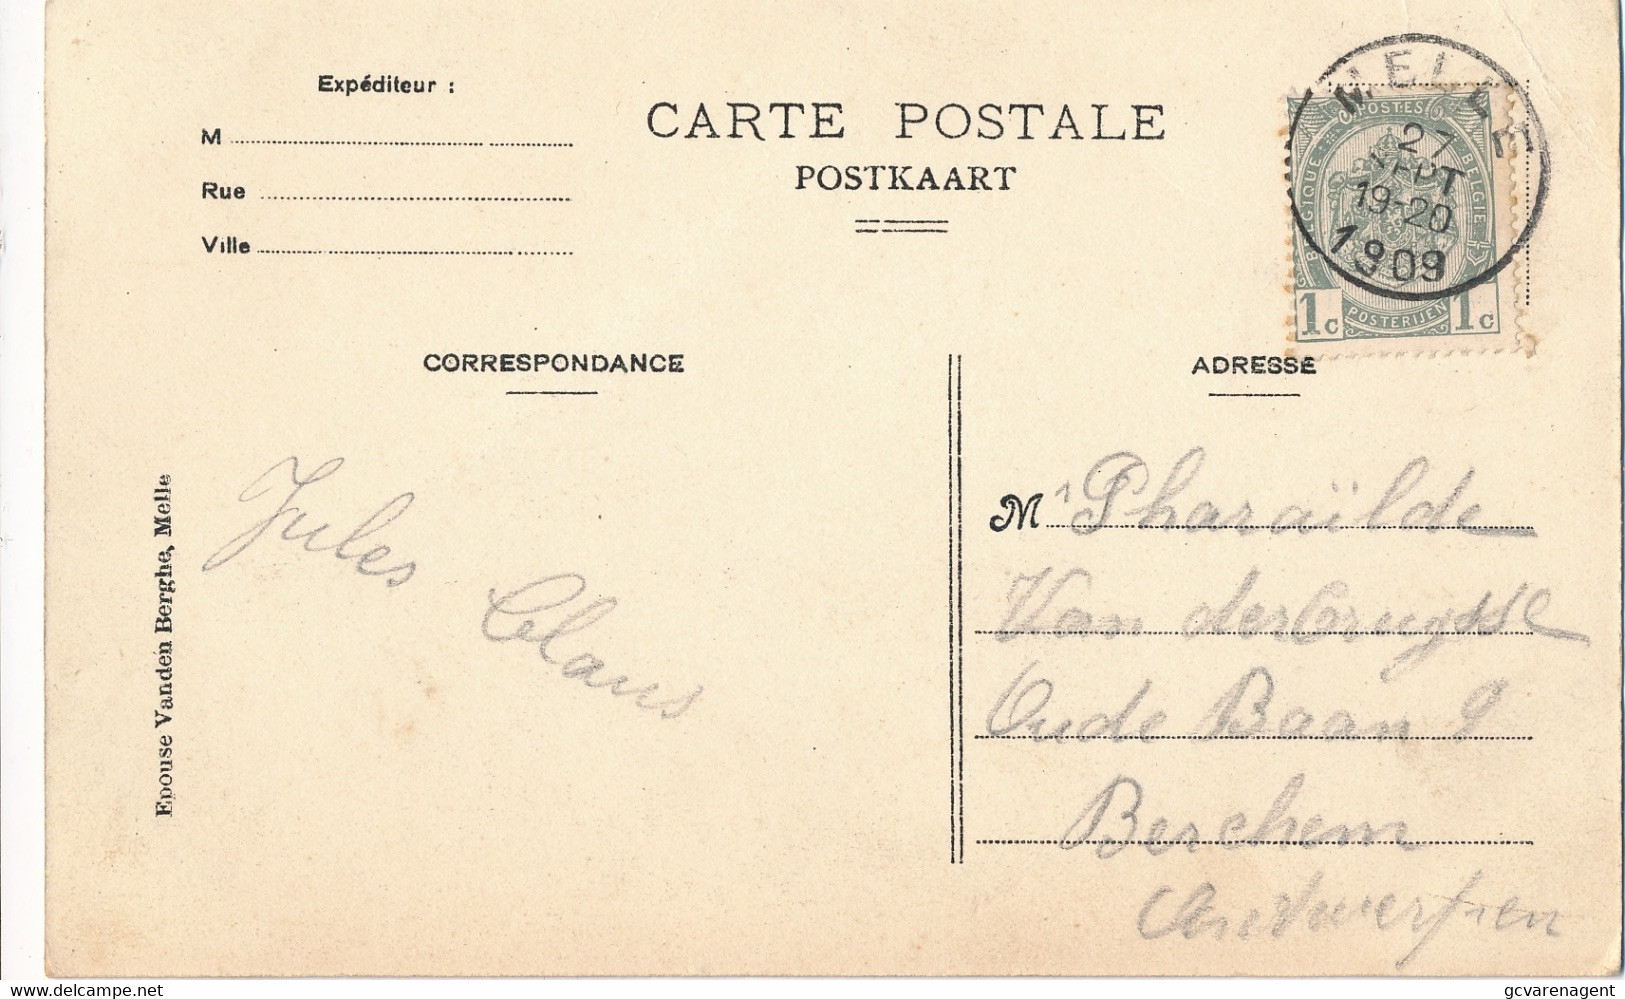 Expéditeur :
M
Rue
Ville
CARTE POSTALE
POSTKAART
MELLE
27
SEPT
19-20
1909
POSTES
BELGIQUE
BELGIE
POSTERIJEN
1c 1c
CORRESPONDANCE
ADRESSE
Epouse Vanden Berghe, Melle
Jules Claus
M Pharaïlde
Van der Cruysse
Oude Baan 9
Berchem
Antwerpen
delcampe.net
gcvarenagent